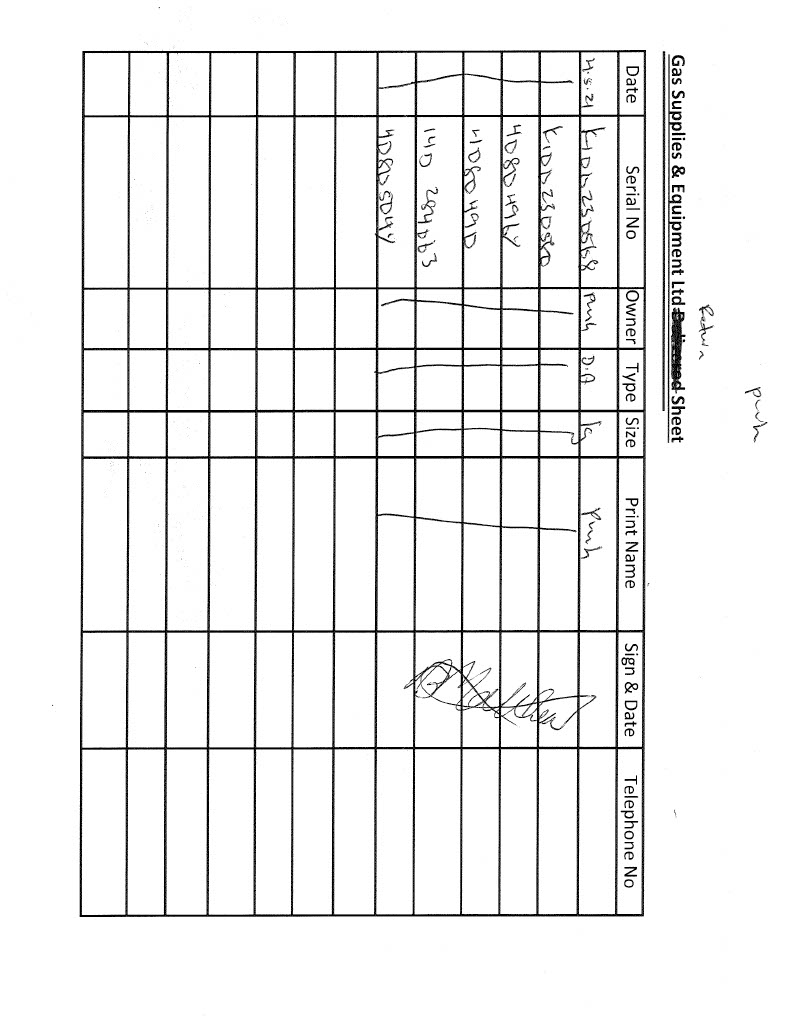 Return
Gas Supplies & Equipment Ltd Delivered Sheet
Date Serial No Owner Type Size Print Name Sign & Date Telephone No
4.5.21 K1DD230568 D.A
K1DD230580
4D8D496Y
4D8D49D
14D 284D63
4D8D5D4Y